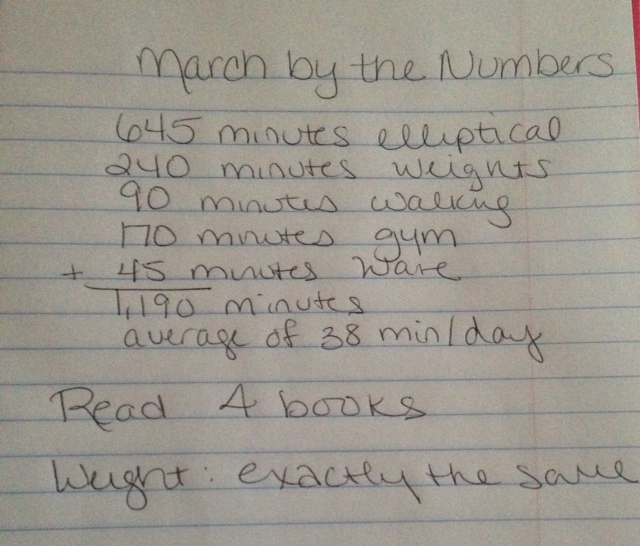 March by the Numbers
645 minutes elliptical
240 minutes weights
90 minutes walking
170 minutes gym
+ 45 minutes Ware
1,190 minutes
average of 38 min/day
Read 4 books
Weight: exactly the same